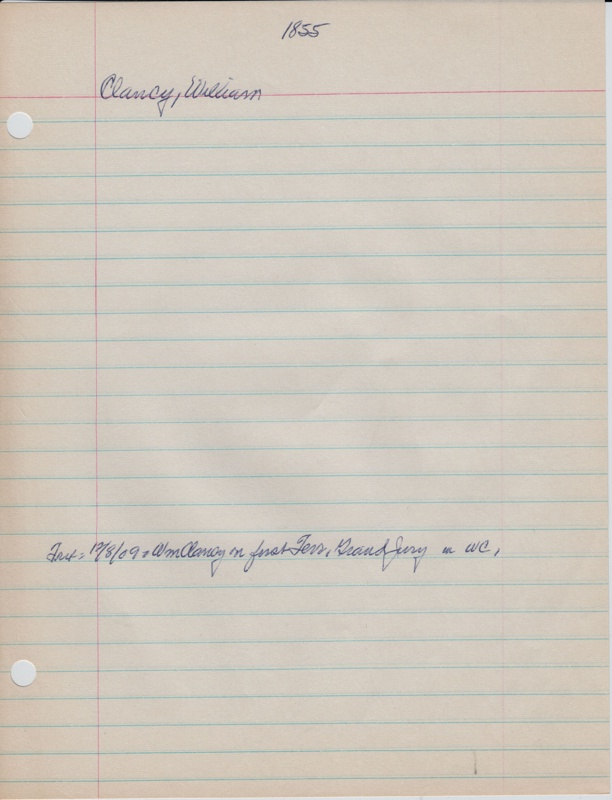 1855
Clancy, William
/8/09 = Wm Clancy on first Terr. Grand Jury in WC.